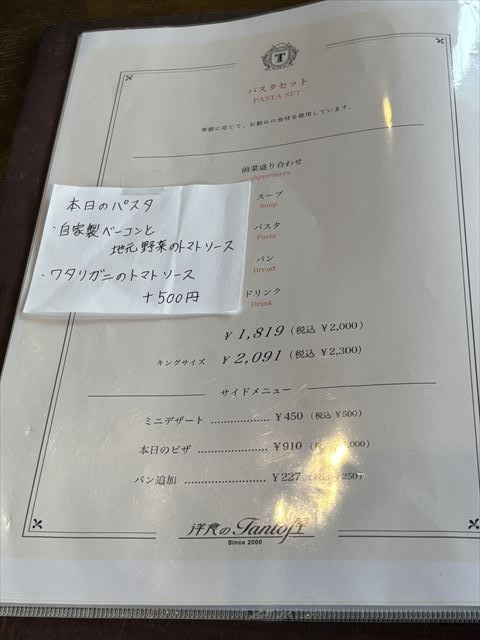 T
パスタセット
PASTA SET
季節に応じて、お勧めの食材を使用しています。
前菜盛り合わせ
Appetizers
スープ
Soup
パスタ
Pasta
パン
Bread
ドリンク
Drink
本日のパスタ
・自家製ベーコンと
地元野菜のトマトソース
・ワタリガニのトマトソース
+500円
¥1,819(税込 ¥2,000)
キングサイズ ¥2,091(税込 ¥2,300)
サイドメニュー
ミニデザート .................. ¥450 (税込 ¥500)
本日のピザ ...................... ¥910 (税込 ,000)
パン追加 .......................... ¥227 (税込 ¥250)
洋食のTanto屋
Since 2000